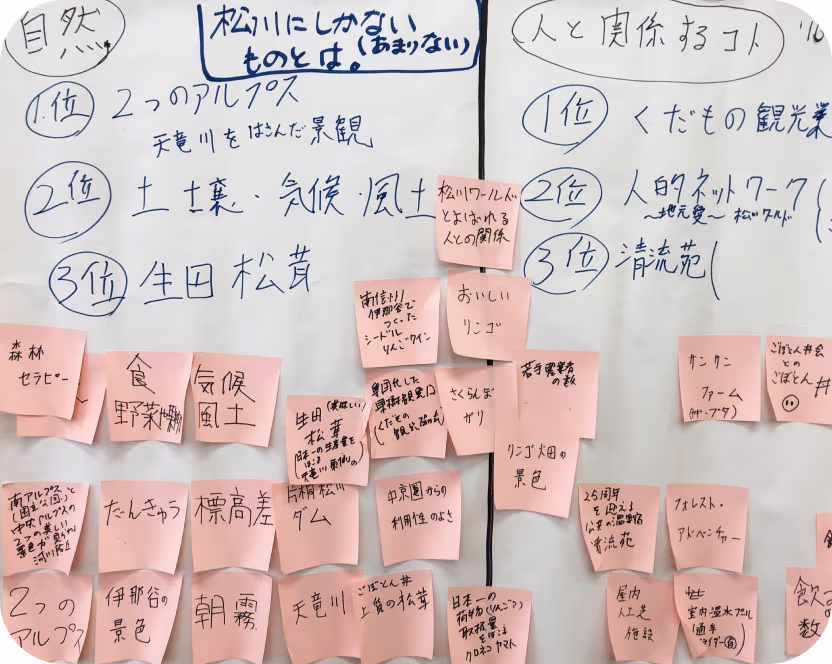 自然
松川にしかない
ものとは。(あまりない)
1位 2つのアルプス
天竜川をはさんだ景観
2位 土壌・気候・風土
3位 生田 松茸
人と関係するコト
1位 くだもの観光業
2位 人的ネットワーク(
〜地元愛〜 松川ワールド
3位 清流苑(
松川ワールドと
よばれる
人との関係
南信州
伊那谷で
つくった
シードル
りんごワイン
おいしい
リンゴ
森林
セラピー
食
野菜
気候
風土
生田
松茸
日本一の生産量を
ほこる
天竜川東側の
果樹観光
(くだもの
さくらんぼ
ガリ
若手農業者
の数
リンゴ畑の
景色
サンサン
ファーム
ごぼとん丼会
との
ごぼとん丼
南アルプスと
(国立公園)
中央アルプスの
2つの美しい
景色が
河川
たんきゅう
標高差
片桐松川
ダム
中京圏からの
利用性のよさ
25周年
を迎える
公共の温泉宿
清流苑
フォレスト・
アドベンチャー
2つの
アルプス
伊那谷の
景色
朝霧
天竜川
ごぼとん丼
上質の松茸
日本一の
荷物(りんご)
取扱量
をほこる
クロネコヤマト
屋内
人工芝
施設
室内温水プール
(通年
数